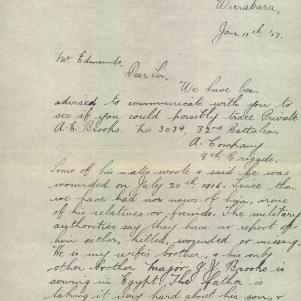 Wirrabara,
Jan 11th '17.
Mr Edmonds.
Dear Sir,
We have been
advised to communicate with you to
see if you could possibly trace Private
A. E. Brooks. No 3034, 32nd Battalion
A. Company
8th Brigade.
Some of his mates wrote & said he was
wounded on July 20th 1916. Since then
we have had no news of him, none
of his relatives or friends. The military
authorities say they have no report of
him either, killed, wounded or missing.
He is my wife's brother, & his only
other brother Major Brooks is
serving in Egypt. The father is
taking it very hard about his son, &